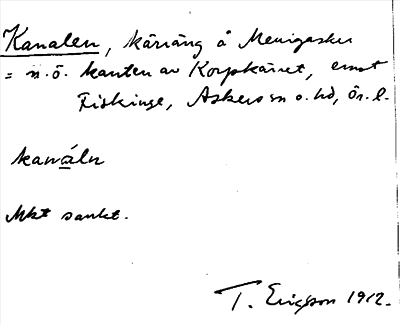 Kanalen, kärräng å Menigasker
= n.ö. kanten av Korpkärret, emot
Fiskinge, Askers sn o. hd, Ör. l.
kanáln
Mkt sankt.
T. Ericsson 1912.